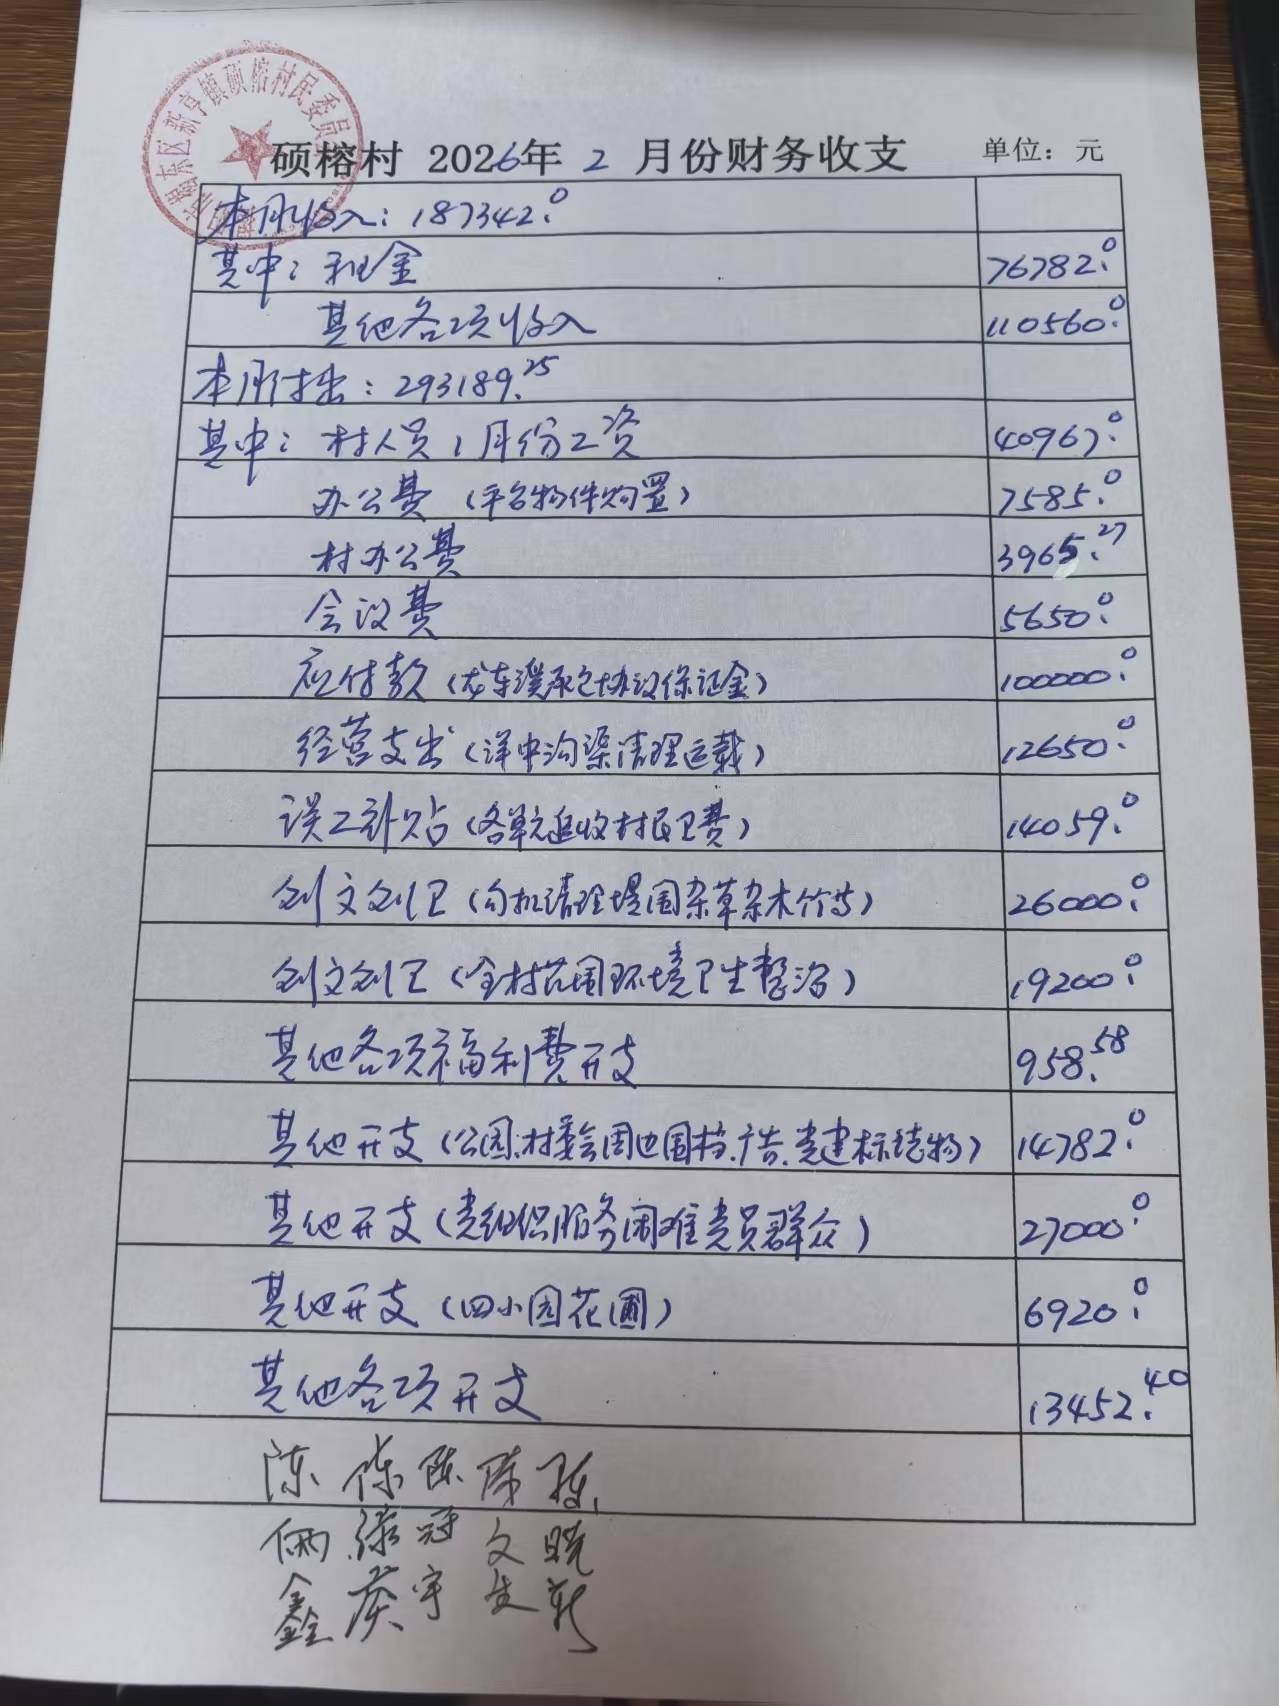 硕榕村 2026年 2 月份财务收支 单位：元
本月收入：187342.0
其中：租金 76782.0
其他各项收入 110560.0
本月付出：293189.25
其中：村人员1月份工资 40967.0
办公费（平台物件购置） 7585.0
村办公费 3965.27
会议费 5650.0
应付款（承包协议保证金） 100000.0
经营支出（洋中沟渠清理运载） 12650.0
误工补贴（各单元追收村民卫费） 14059.0
创文创卫（勾机清理堤围杂草杂木竹等） 26000.0
创文创卫（全村范围环境卫生整治） 19200.0
其他各项福利费开支 958.58
其他开支（公园、村委会周边围挡、广告、党建标志物） 14782.0
其他开支（党组织服务困难党员群众） 27000.0
其他开支（四小园花圃） 6920.0
其他各项开支 13452.40